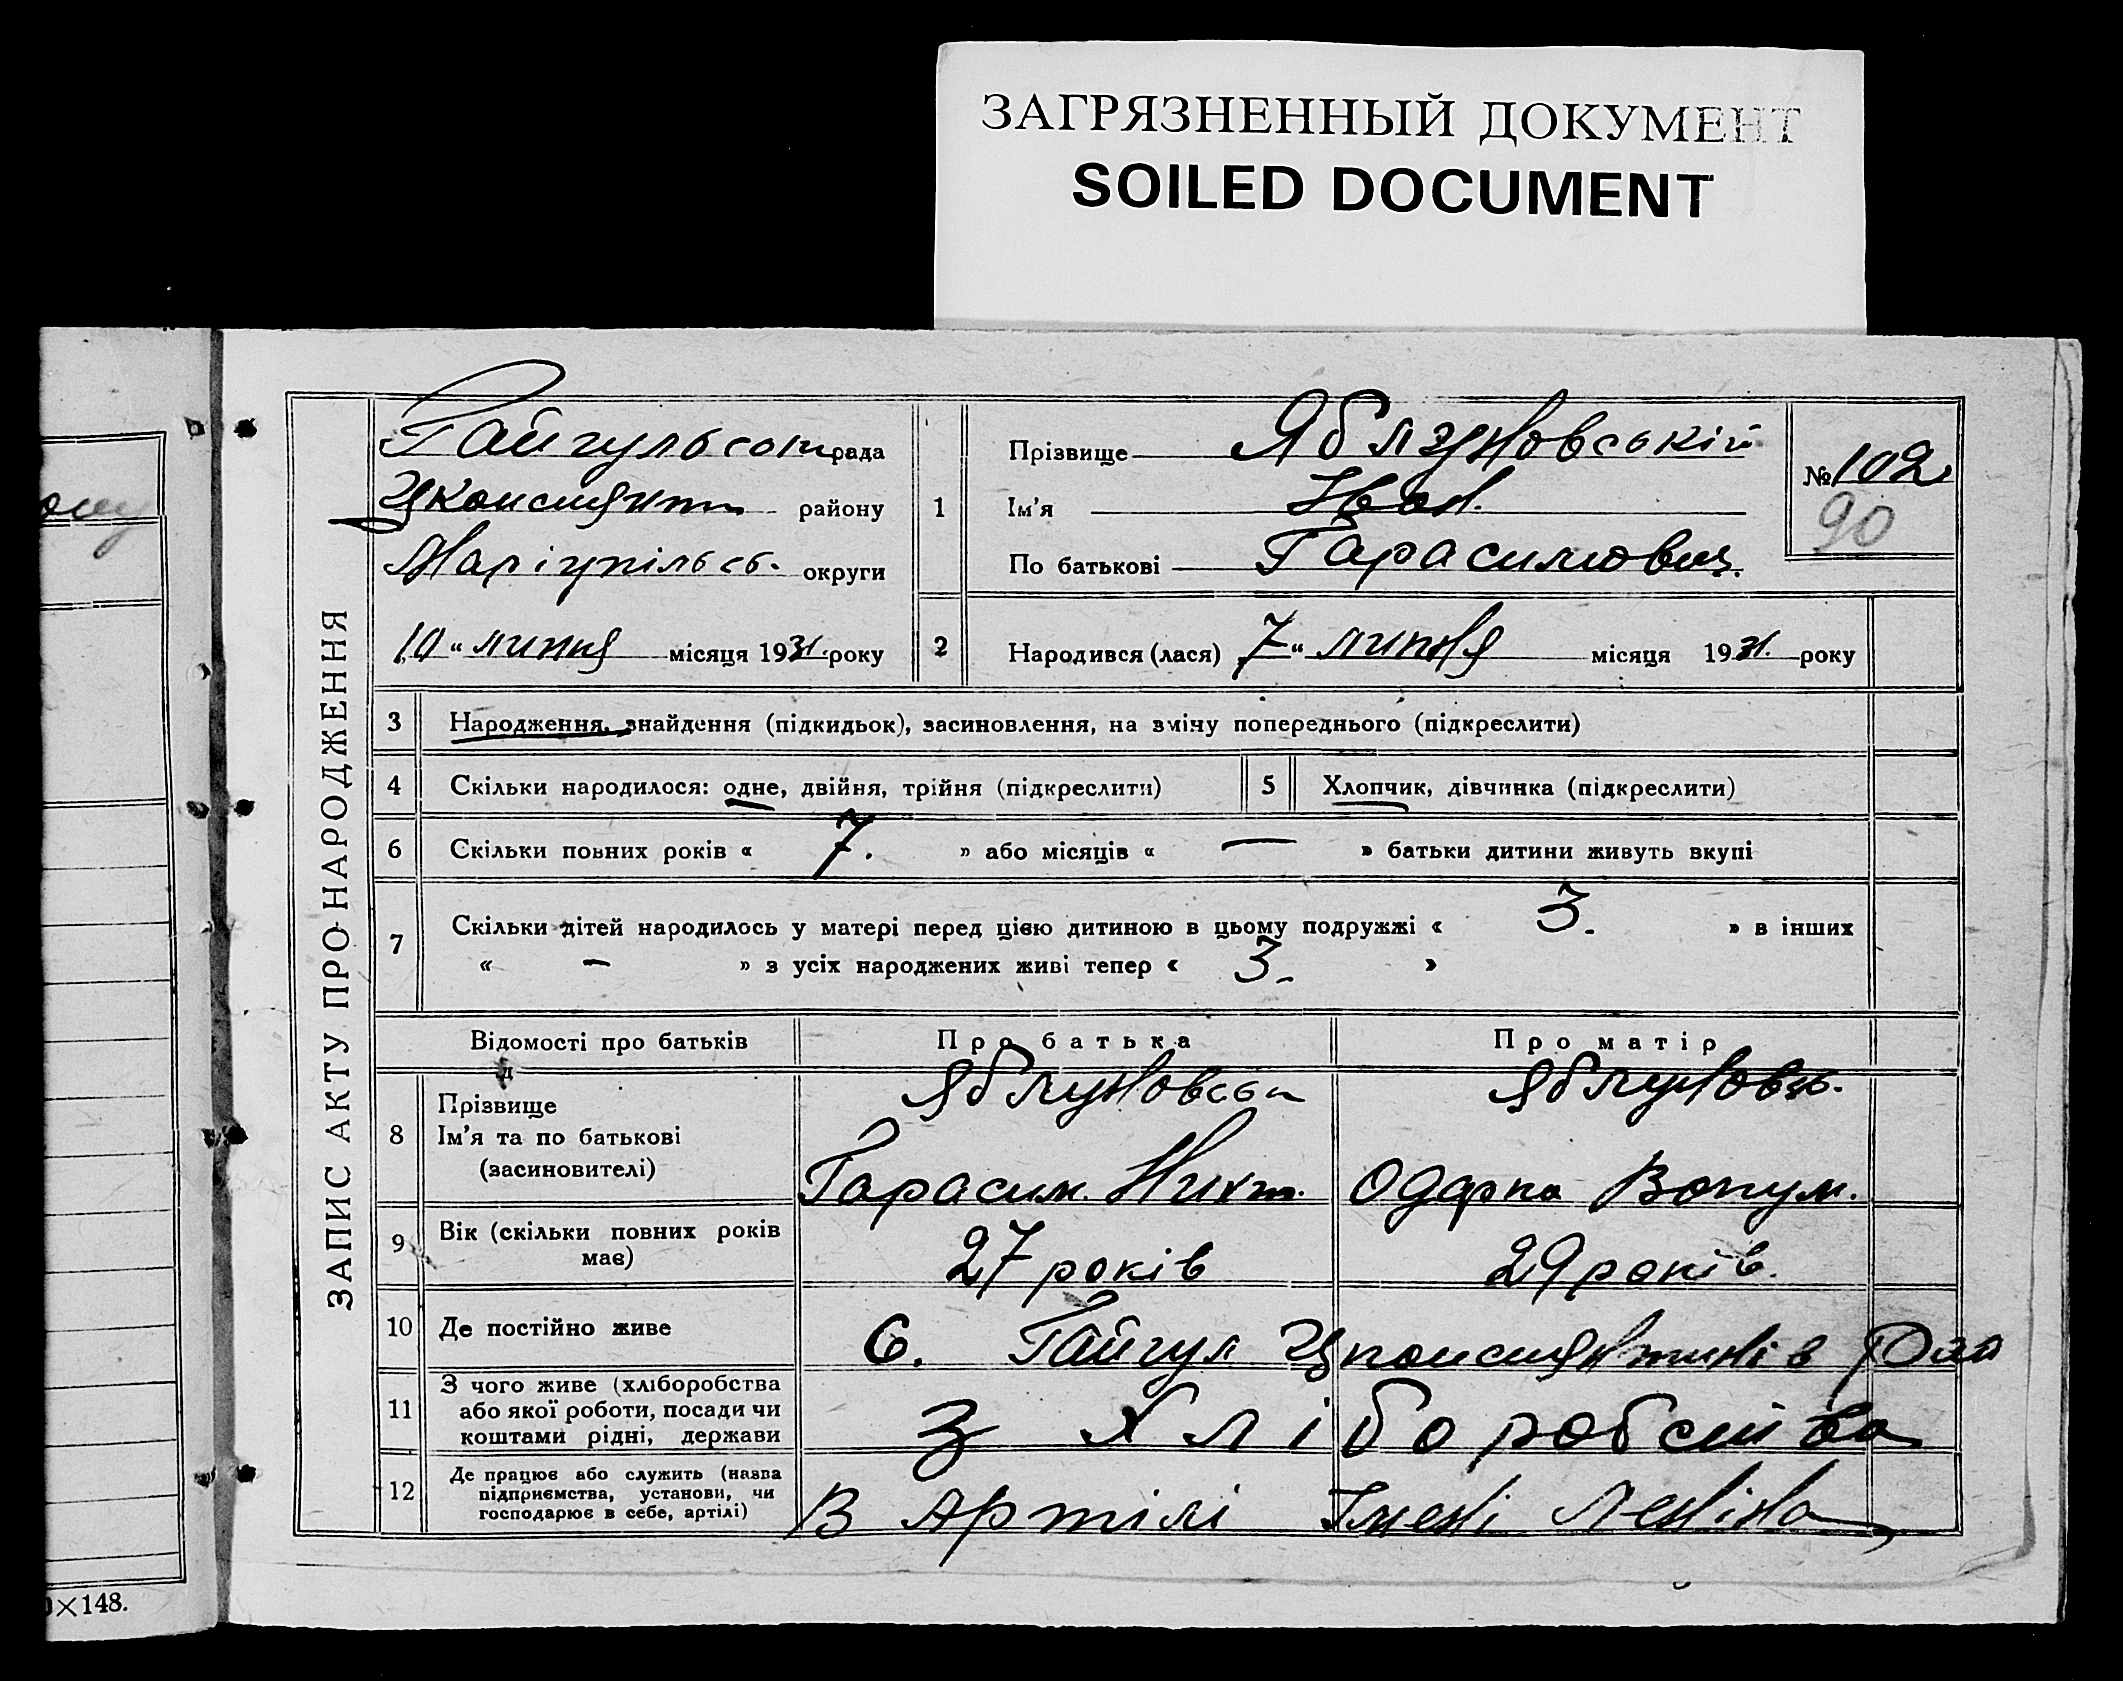 ЗАГРЯЗНЕННЫЙ ДОКУМЕНТ
SOILED DOCUMENT
ЗАПИС АКТУ ПРО НАРОДЖЕННЯ
рада
району
Маріупільсь. округи
„10“ липня місяця 1931. року
1
Прізвище Яблуновській
Ім'я Іван.
По батькові Гарасимович.
№ 102
90
2 Народився (лася) „7“ липня місяця 1931. року
3 Народження, знайдення (підкидьок), засиновлення, на зміну попереднього (підкреслити)
4 Скільки народилося: одне, двійня, трійня (підкреслити) 5 Хлопчик, дівчинка (підкреслити)
6 Скільки повних років « 7. » або місяців « — » батьки дитини живуть вкупі
7 Скільки дітей народилось у матері перед цією дитиною в цьому подружжі « 3. » в інших
« – » з усіх народжених живі тепер « 3. »
Відомості про батьків Про батька Про матір
8 Прізвище
Ім'я та по батькові
(засиновителі)
Гарасим. Микт. Одарка
9 Вік (скільки повних років має) 27 років 29 років.
10 Де постійно живе С. Гайгул
11 З чого живе (хліборобства
або якої роботи, посади чи
коштами рідні, держави
З хліборобства
12 Де працює або служить (назва
підприємства, установи, чи
господарює в себе, артілі)
В Артілі Імені Леніна
×148.